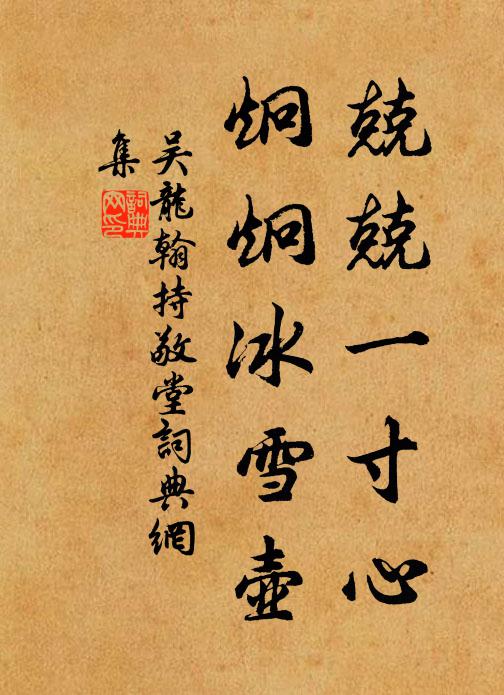 兢兢一寸心
炯炯冰雪壺
吴龍翰持敬堂詞典網
集
詞典網印